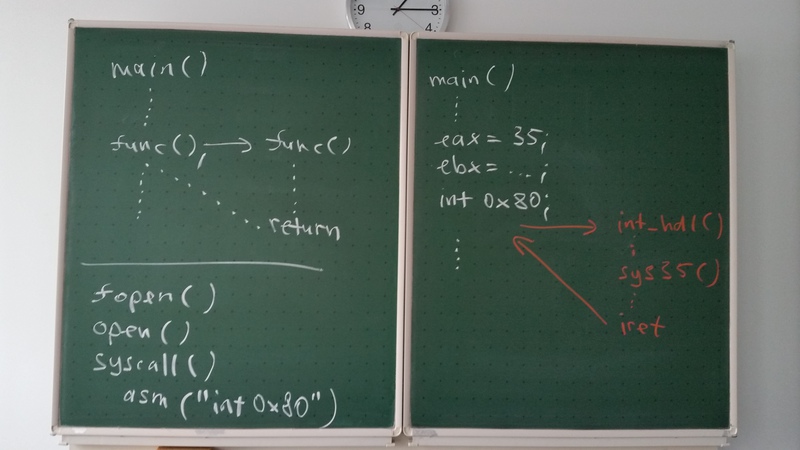 9 3
8 4
main()
func(); → func()
return
fopen()
open()
syscall()
asm("int 0x80")
main()
eax = 35;
ebx = ...;
int 0x80;
int_hdl()
sys35()
iret